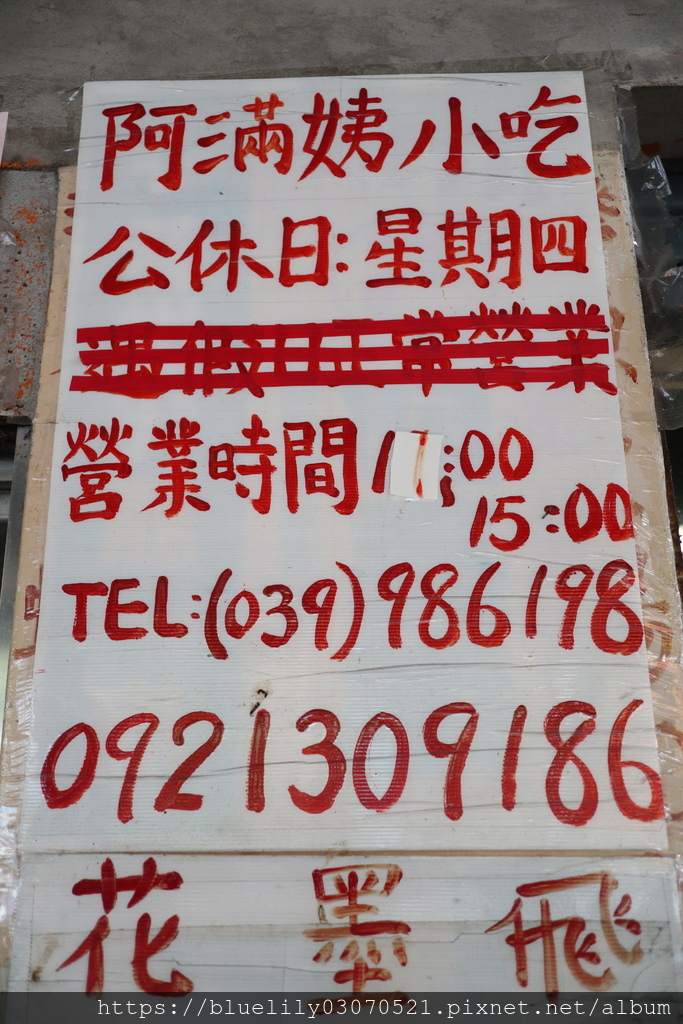 阿滿姨小吃
公休日:星期四
遇假日正常營業
營業時間11:00
15:00
TEL:(039)986198
0921309186
花 墨 飛
https://bluelily03070521.pixnet.net/album